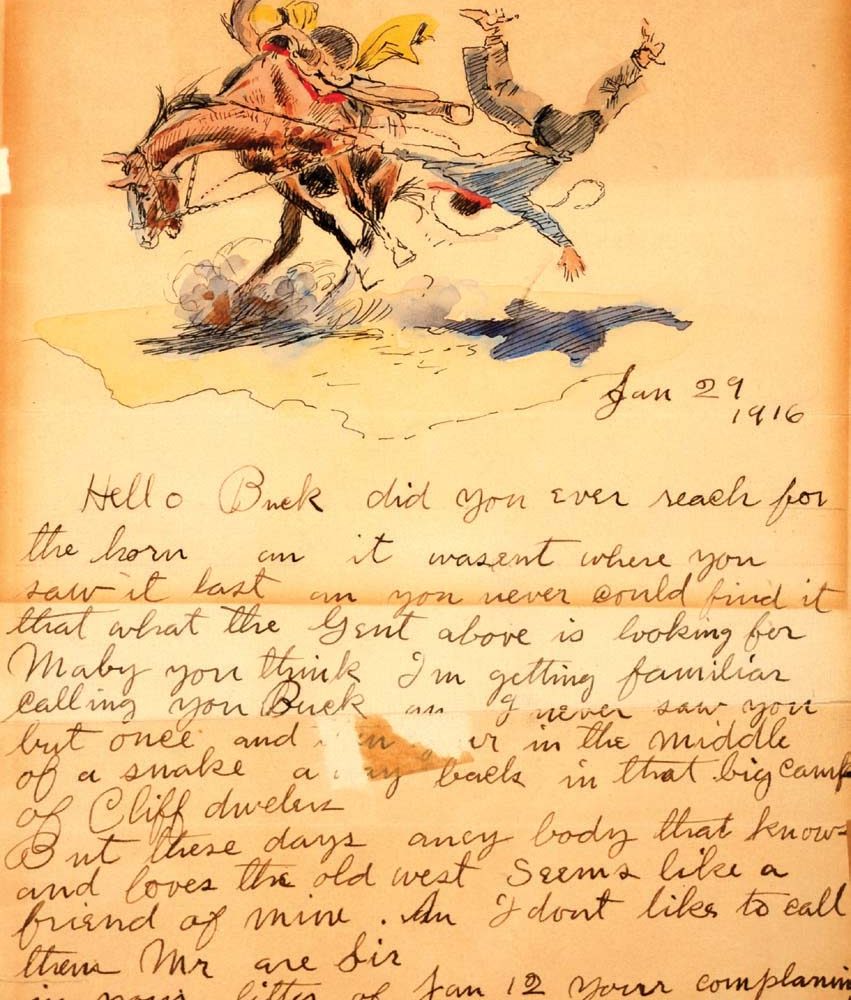 Jan 29
1916
Hello Buck did you ever reach for
the horn an it wasent where you
saw it last an you never could find it
that what the Gent above is looking for
Maby you think I'm getting familiar
calling you Buck an I never saw you
but once and in the middle
of a snake a back in that big camp
of Cliff dwelers
But these days aney body that knows
and loves the old west seems like a
friend of mine. An I dont like to call
them Mr are Sir
in your letter of Jan 12 your complanin